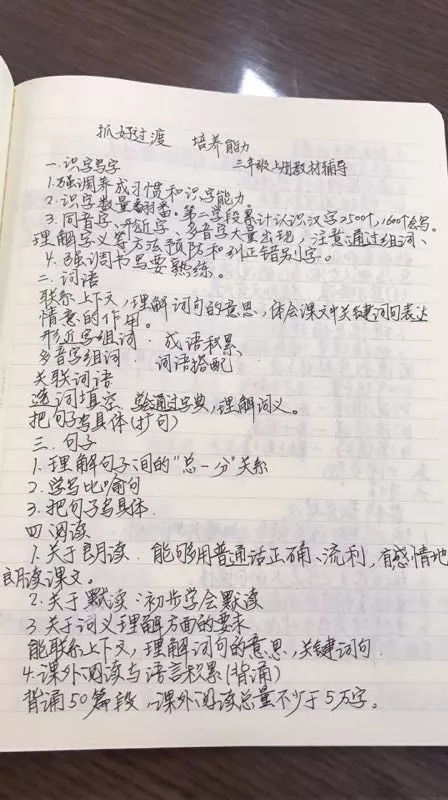 抓好过渡 培养能力
三年级上册教材辅导
一.识字写字
1.强调养成习惯和识字能力。
2.识字数量翻番。第二学段累计认识汉字2500个,1600个会写。
3.同音字、形近字、多音字大量出现,注意通过组词、
理解字义等方法预防和纠正错别字。
4.强调书写要熟练。
二.词语
联系上下文,理解词句的意思,体会课文中关键词句表达
情意的作用。
形近字组词. 成语积累
多音字组词. 词语搭配
关联词语
选词填空 会通过字典,理解词义。
把句子写具体(扩句)
三.句子
1.理解句子间的"总一分"关系
2.学写比喻句
3.把句子写具体.
四 阅读
1.关于朗读. 能够用普通话正确、流利,有感情地
朗读课文。
2.关于默读:初步学会默读
3.关于词义理解方面的要求
能联系上下文,理解词句的意思,关键词句.
4.课外阅读与语言积累(背诵)
背诵50篇段,课外阅读总量不少于5万字。